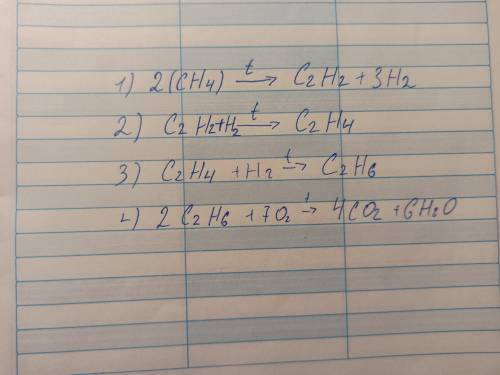 1) 2(CH4) t→ C2H2 + 3H2
2) C2H2+H2 t→ C2H4
3) C2H4 + H2 t→ C2H6
4) 2C2H6 + 7O2 t→ 4CO2 + 6H2O